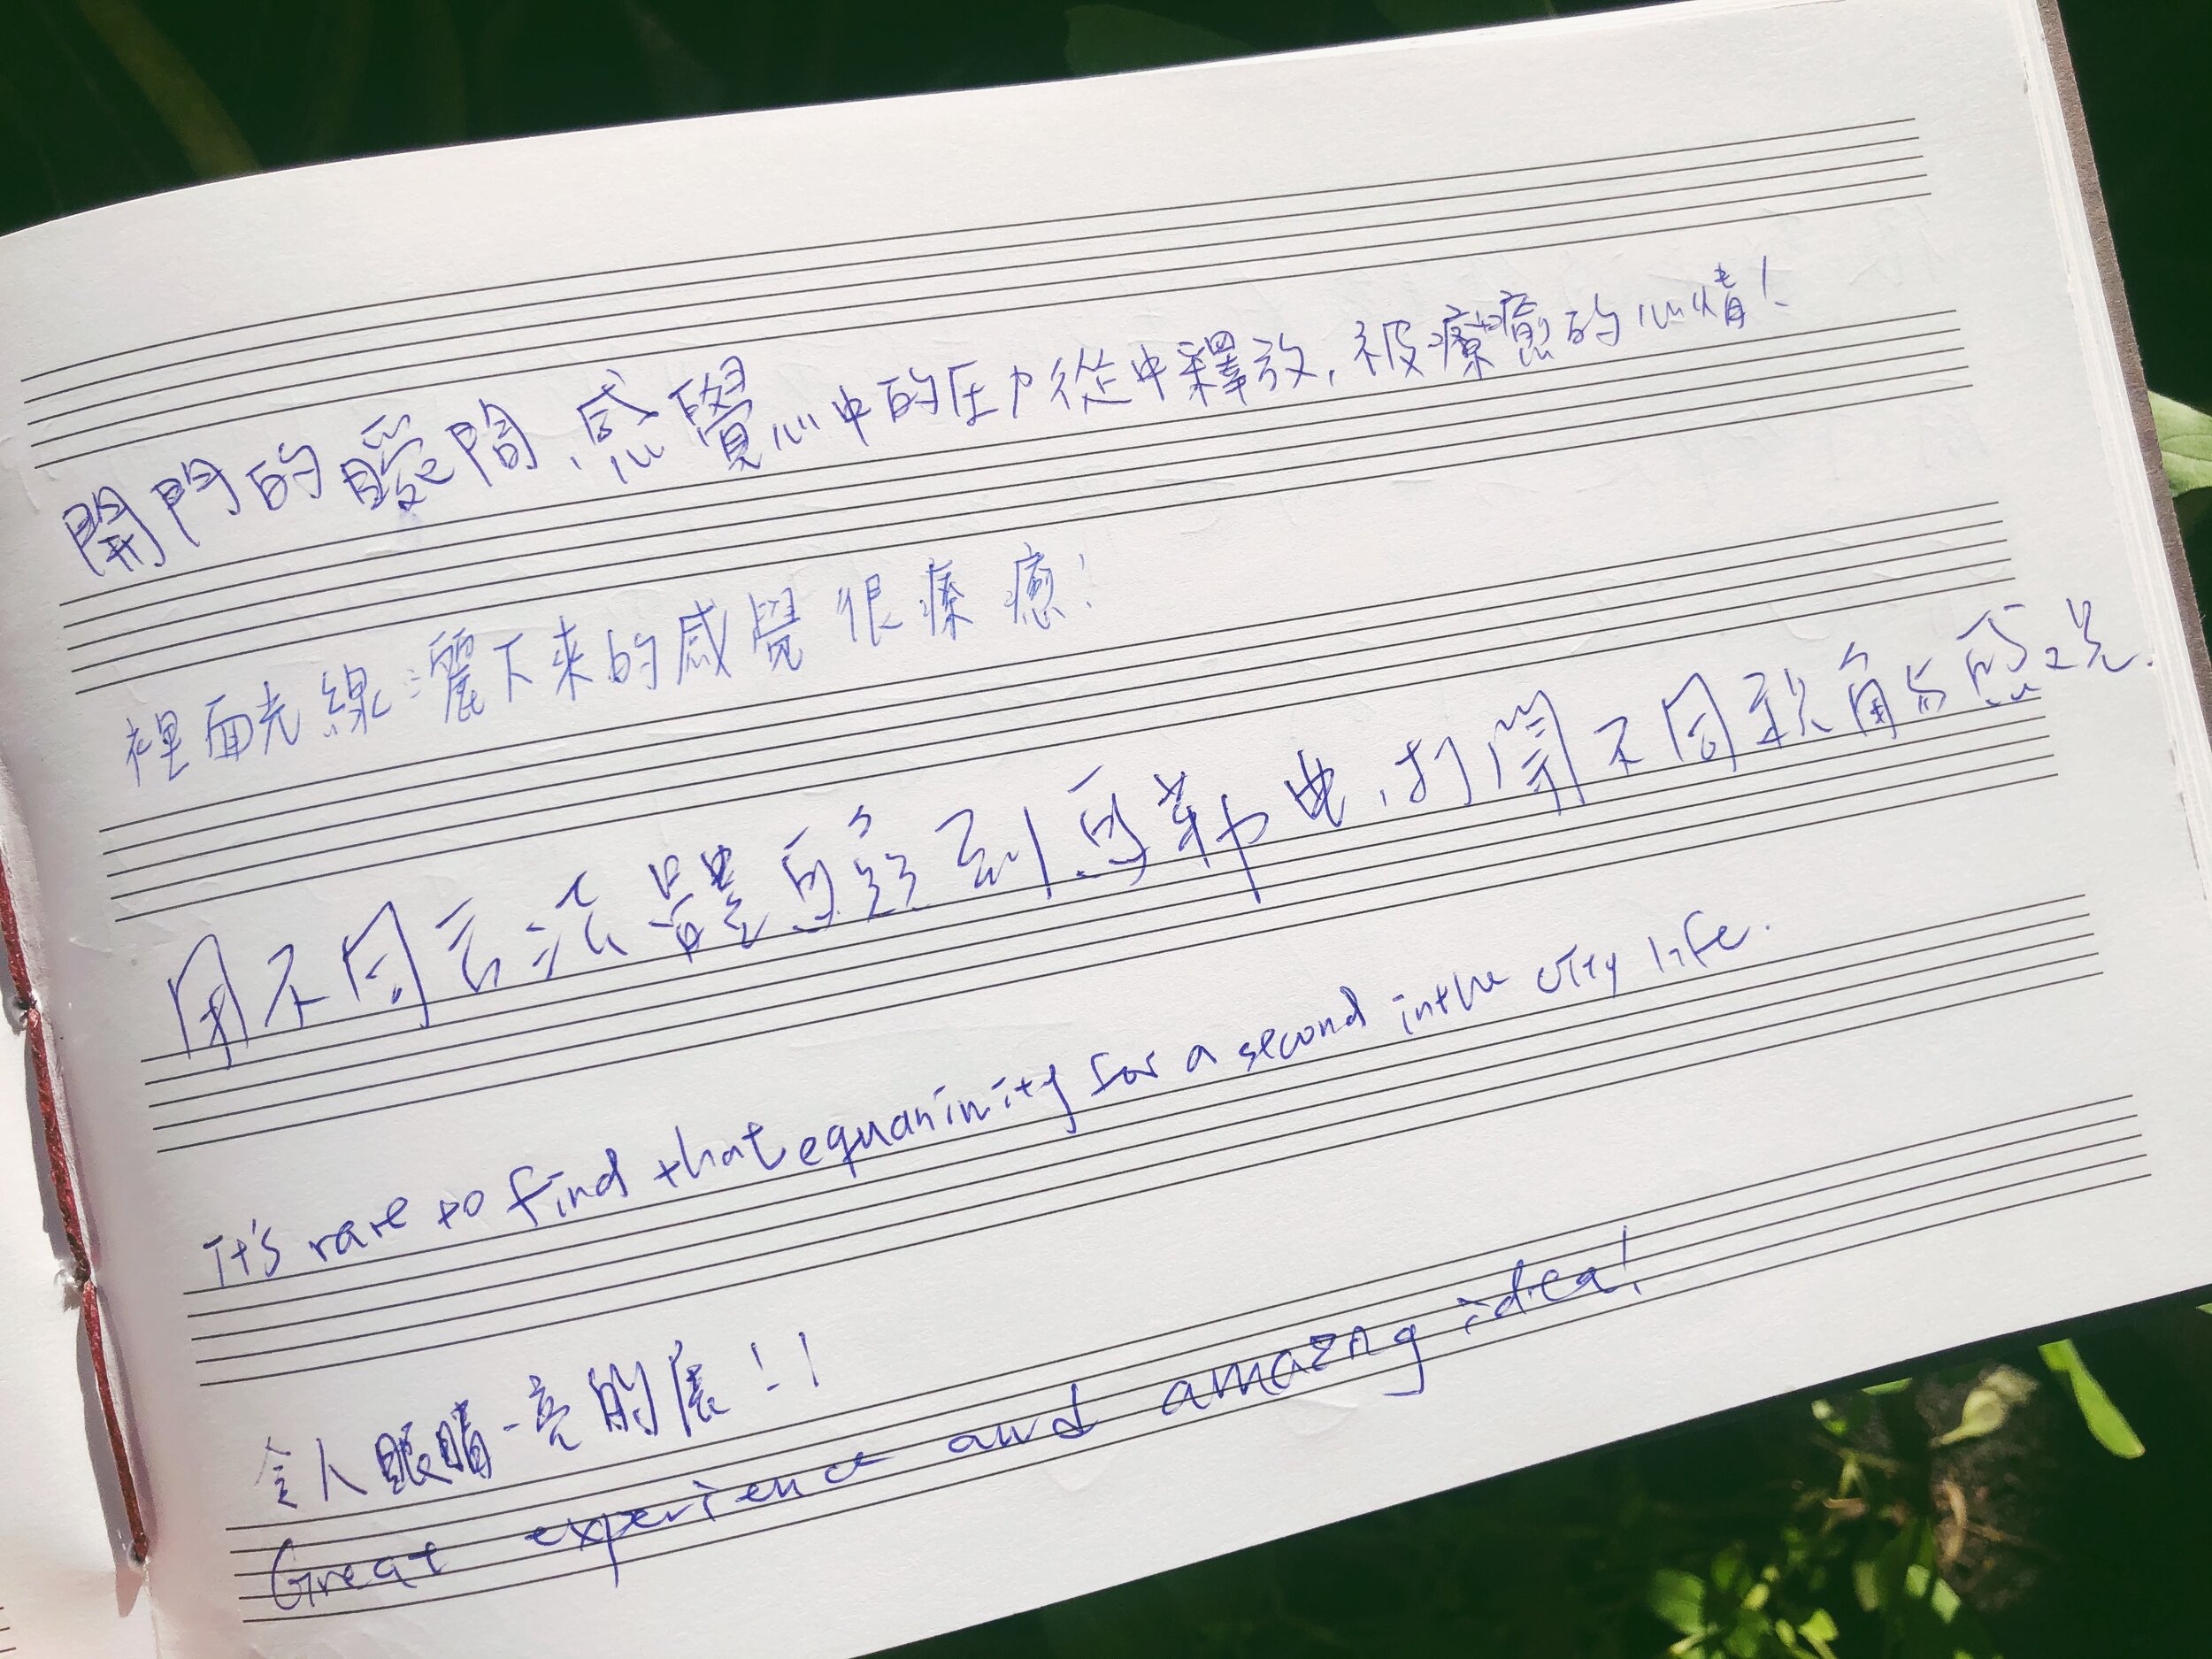 開門的瞬間,感覺心中的压力從中釋放,被療癒的心情!
裡面光線灑下來的感覺很療癒!
用不同方法體驗到馬勒曲,打開不同視角與
It's rare to find that equaninity for a second in the city life.
令人眼睛一亮的展!!
Great experience and amazing idea!